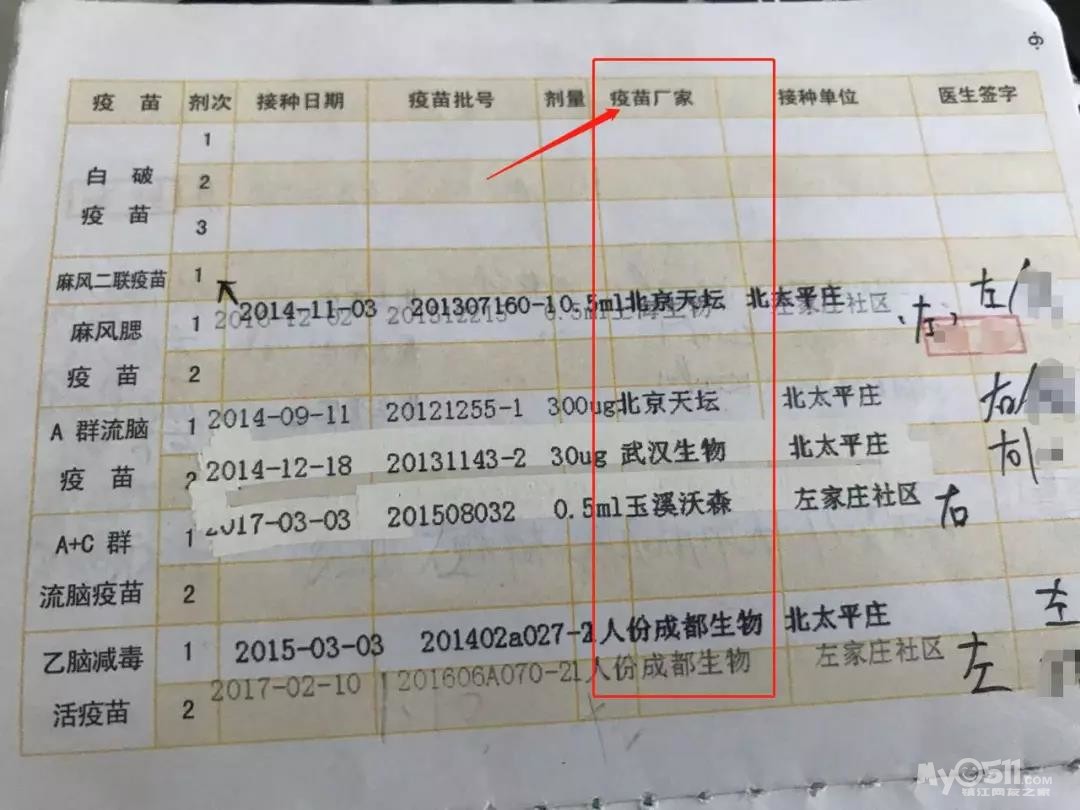 9
疫苗 剂次 接种日期 疫苗批号 剂量 疫苗厂家 接种单位 医生签字
白破疫苗 1
2
3
麻风二联疫苗 1
2014-11-03 201307160-1 0.5ml 北京天坛 北太平庄 左
麻风腮疫苗 1 左家庄社区 左
2
A群流脑疫苗 1 2014-09-11 20121255-1 300ug 北京天坛 北太平庄 右
2 2014-12-18 20131143-2 30ug 武汉生物 北太平庄 右
A+C群流脑疫苗 1 2017-03-03 201508032 0.5ml 玉溪沃森 左家庄社区 右
2
乙脑减毒活疫苗 1 2015-03-03 201402a027-2 1人份 成都生物 北太平庄 左
2 2017-02-10 201606A070-2 1人份 成都生物 左家庄社区 左
My0511.com
镇江网友之家